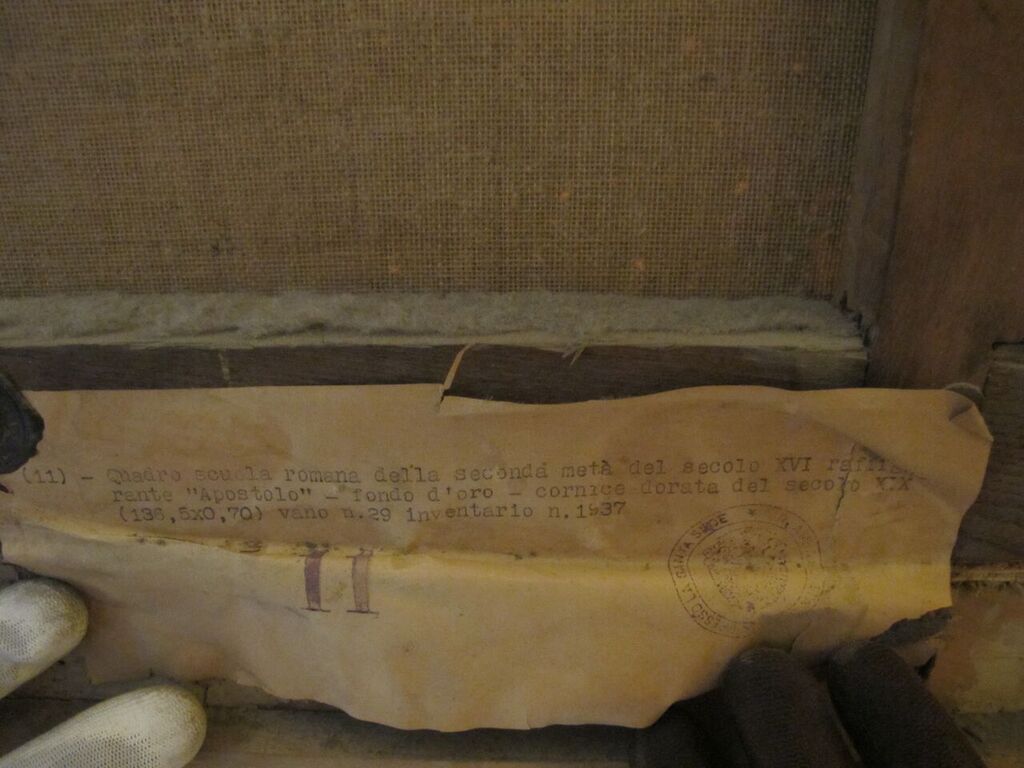 (11) - Quadro scuola romana della seconda metà del secolo XVI raffigu-
rante "Apostolo" - fondo d'oro - cornice dorata del secolo XIX
(136,5x0,70) vano n.29 inventario n.1937
11
PRESSO LA SANTA SEDE